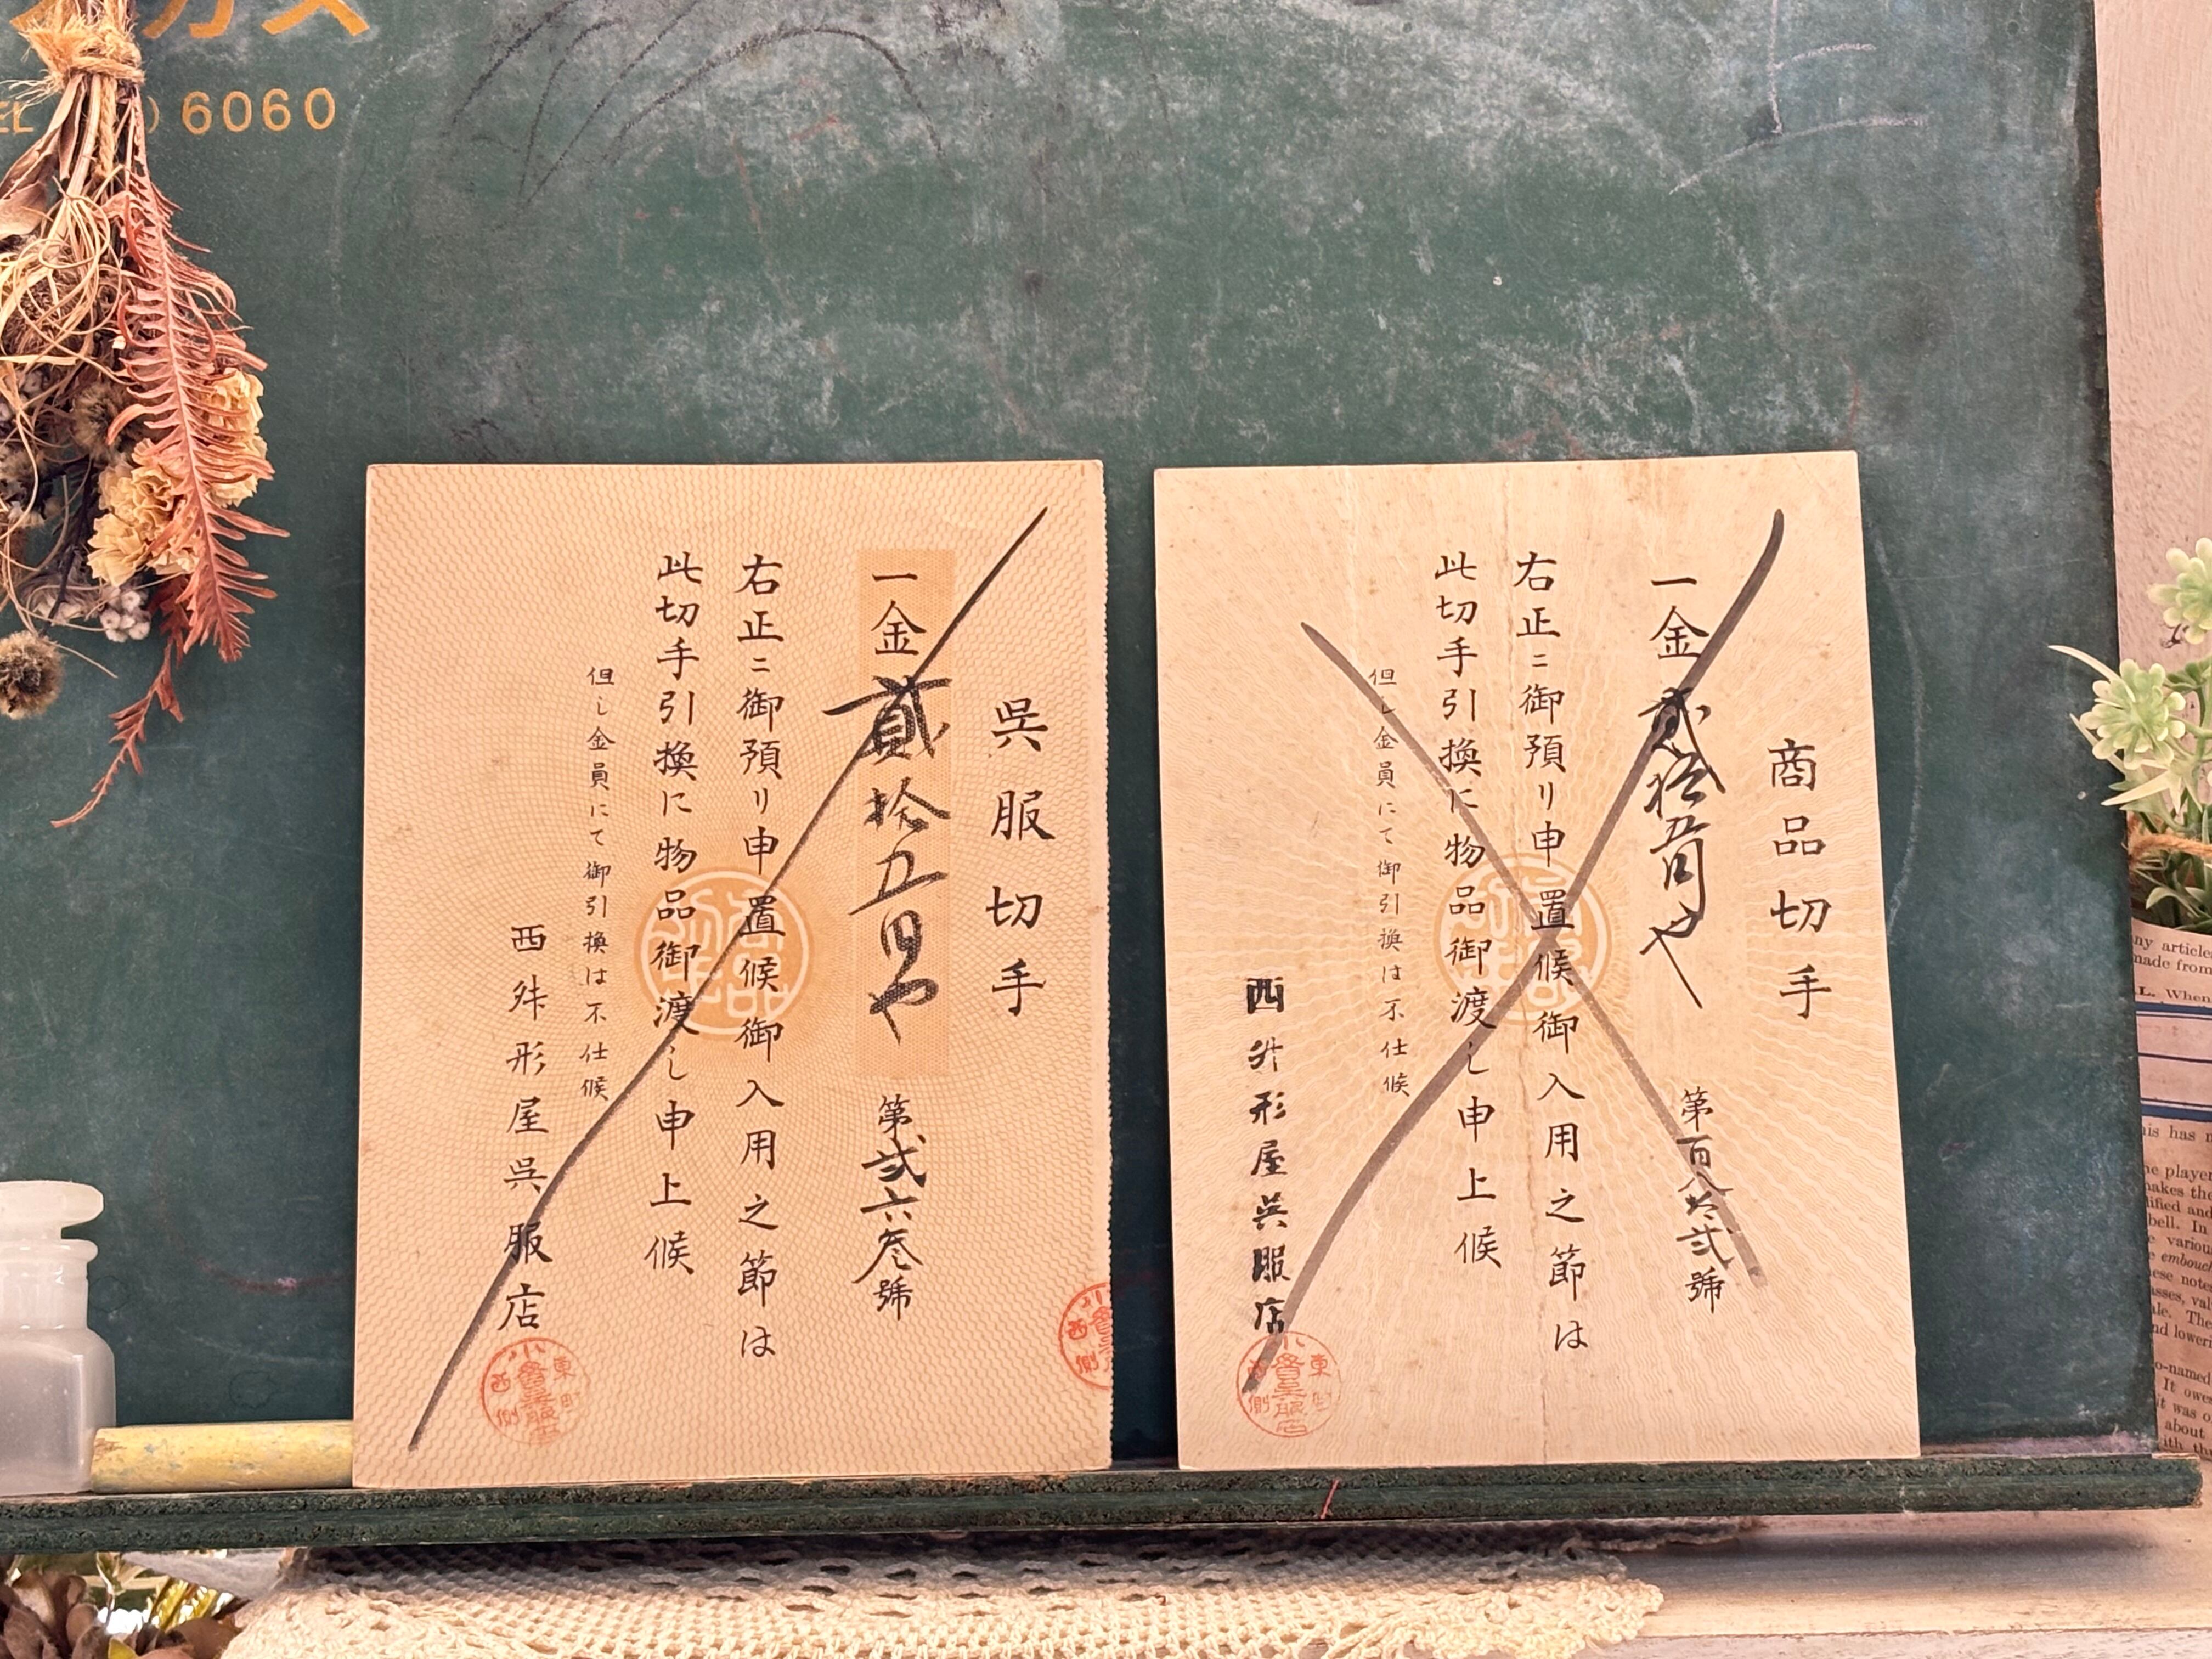 6060
呉服切手
一金貳拾五円や
第弐六叁號
右正ニ御預リ申置候御入用之節は
此切手引換に物品御渡し申上候
但し金員にて御引換は不仕候
西舛形屋呉服店
東町
西側
商品切手
一金貳拾五円や
第百八拾弐號
右正ニ御預リ申置候御入用之節は
此切手引換に物品御渡し申上候
但し金員にて御引換は不仕候
西升形屋呉服店
東町
西側
ny article
made from
L. When
his has
he player
makes the
lified and
bell. In
various
embouch
ese note
asses, val
ale. The
nd loweri
o-named
It owe
it was o
about
ith th